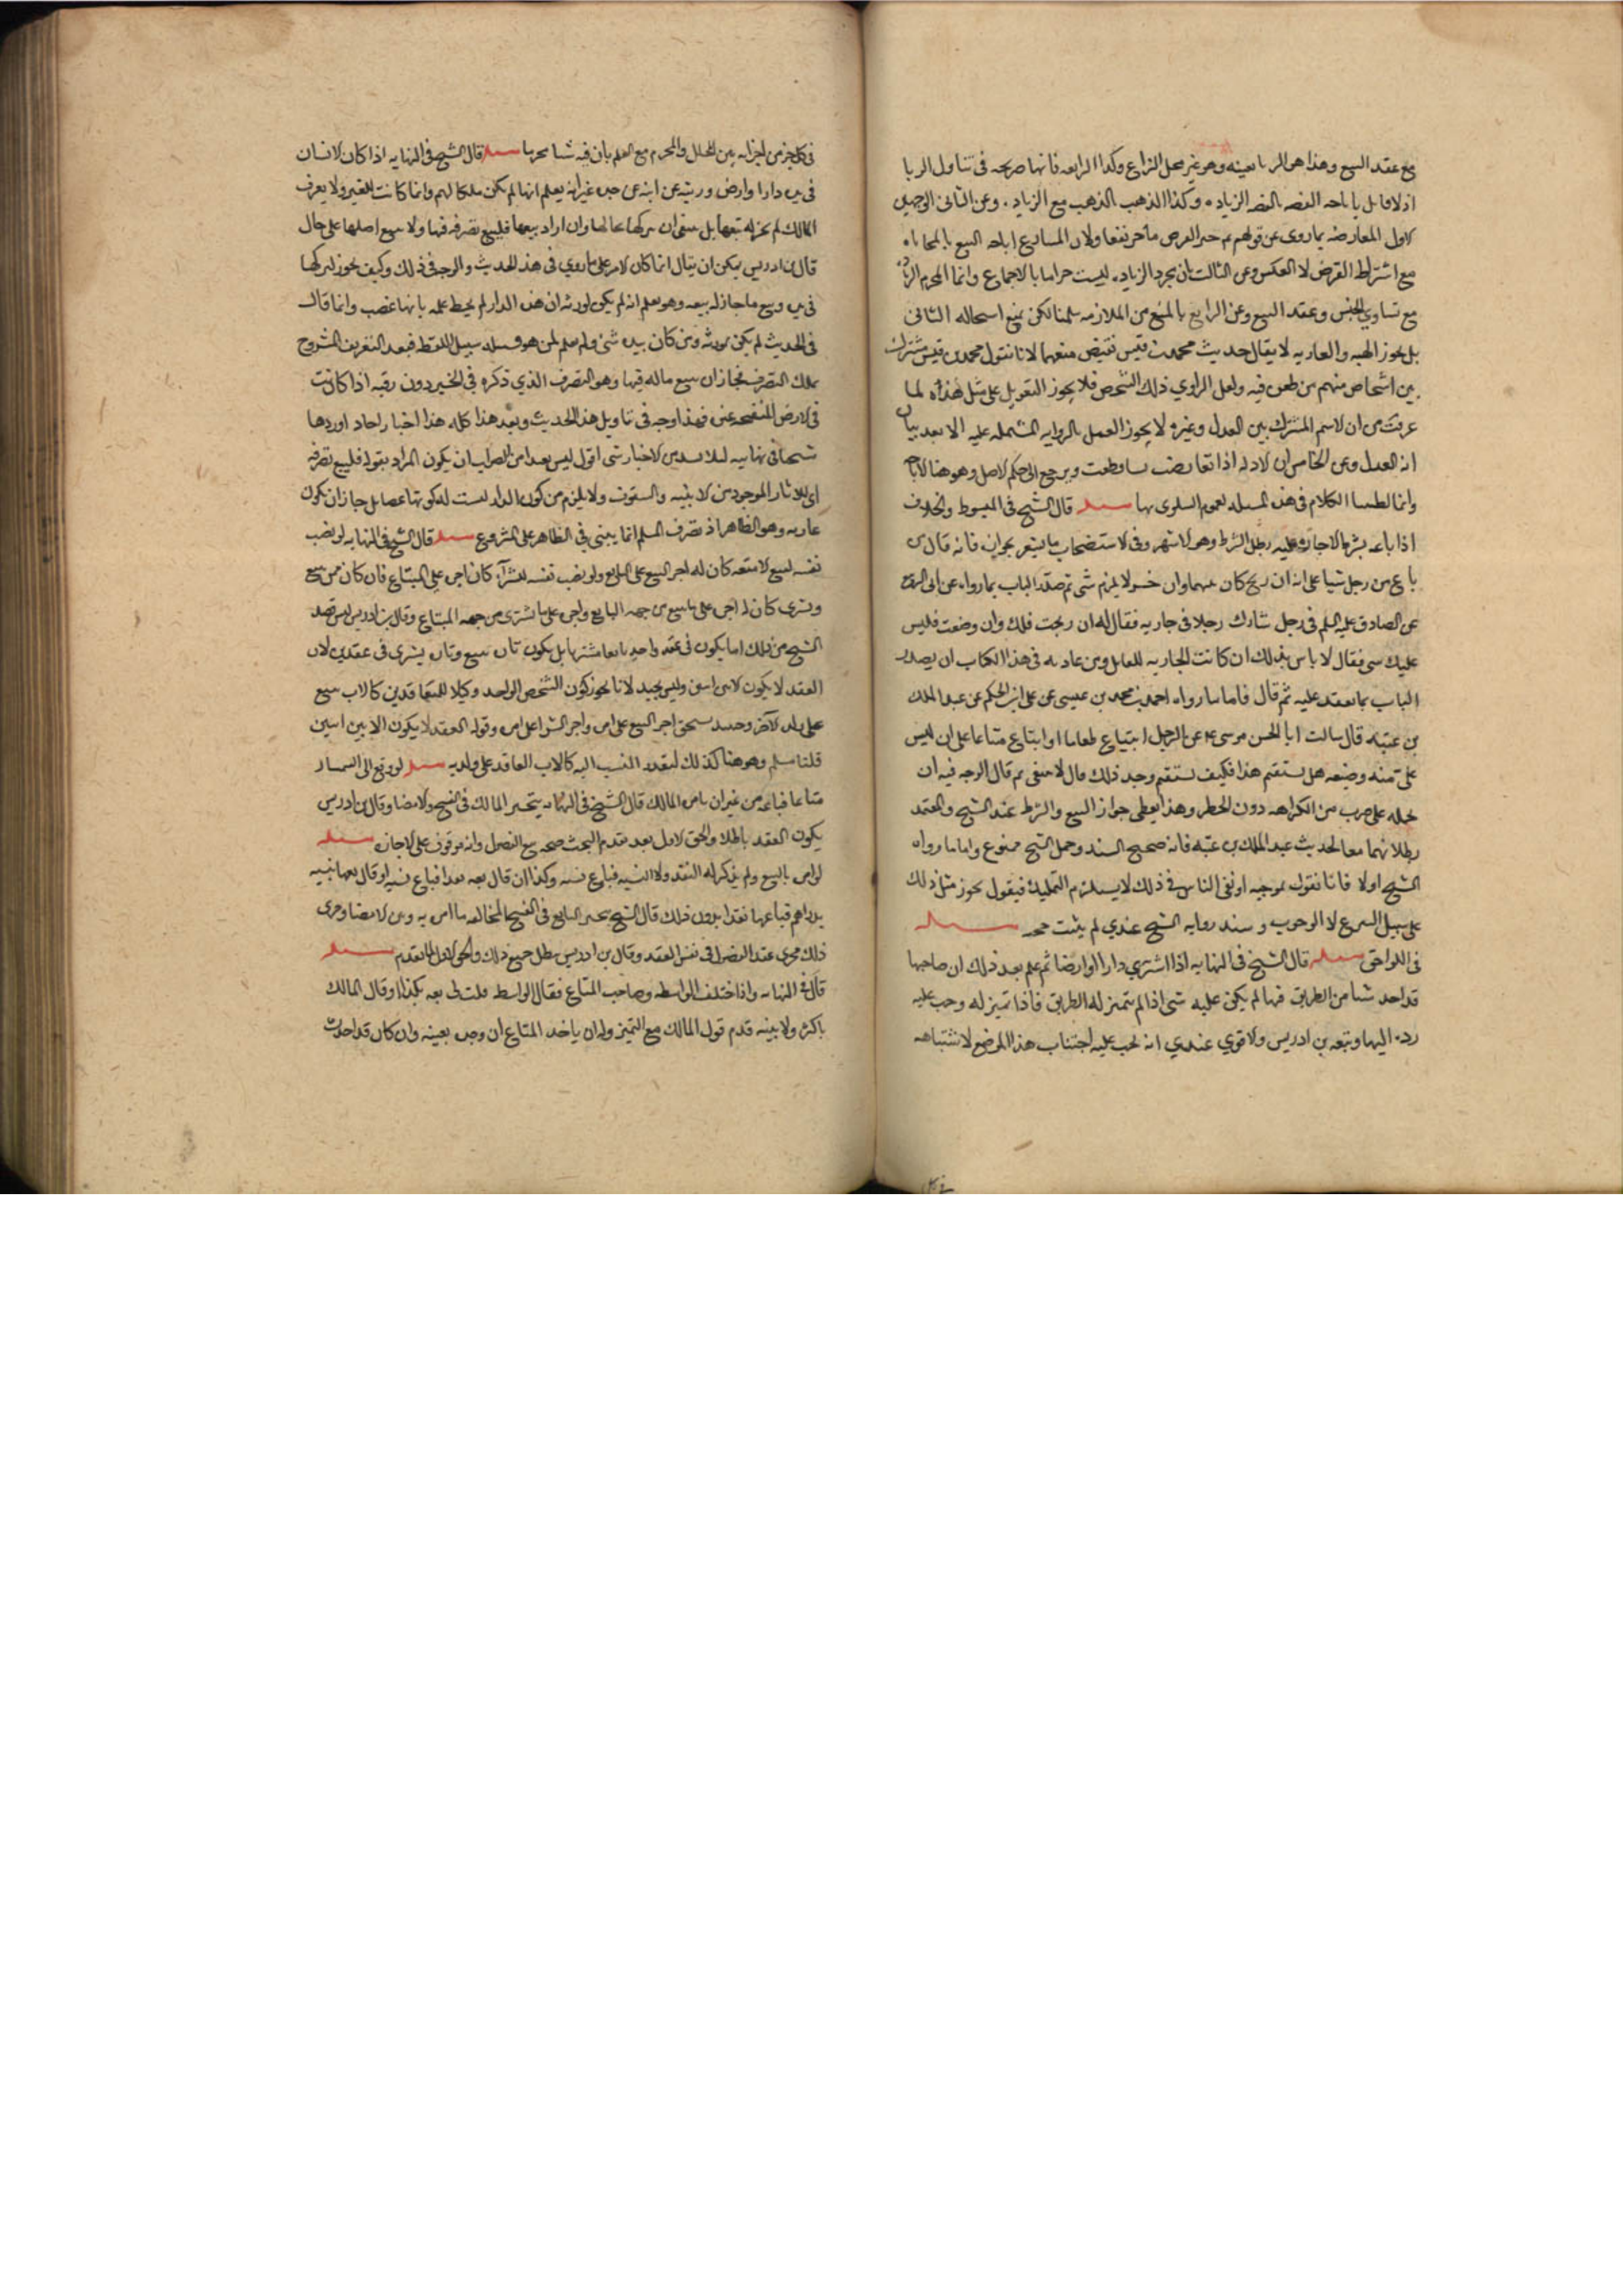 مع عقد البيع وهذا هو الربا بعينه وهو غير محل النزاع وكذا الرابعه فانها صريحه فى تناول الربا
اذ لا قايل باباحه الفضه بالفضه الزياده وكذا الذهب بالذهب مع الزياده وعن الثانى الوجهين
الاول المعارضه بماروى عن قولهم عم خير القرض ما جر نفعا ولان المسايع اباحه البيع بالمحاباه
مع اشتراط القرض لا العكس وعن الثالث بان مجرد الزياده ليست حراما بالاجماع وانما المحرم الزياده
مع تساوي الجنس وعقد البيع وعن الرابع بالمنع من الملازمه سلمنا لكن نمنع استحاله الثانى
بل يجوز الهبه والعاريه لا يقال حديث محمد بن قيس نقيض منعهما لانا نقول محمد بن قيس مشترك
بين اشخاص منهم من طعن فيه ولعل الراوي ذلك الشخص فلا يجوز التعويل على مثل هذه لما
عرفت من ان الاسم المشترك بين العدل وغيره لا يجوز العمل بالروايه المشتمله عليه الا بعد بيان
انه العدل وعن الخامس ان الادله اذا تعارضت تساقطت ويرجع الى حكم الاصل وهو هنا الاباحه
وانما طلبنا الكلام فى هذه المسئله لعموم البلوى بها مسئله قال الشيخ فى المبسوط والخلاف
اذا باعه بشرط الاجازه عليه بطل الشرط وهو الاشهر وفى الاستضحاب ما يشعر بجوازه فانه قال من
باع من رجل شيا على انه ان ربح كان بينهما وان خسر لا يلزم شى ثم صدر الباب بما رواه عن ابى الربيع
عن الصادق عليه السلم فى رجل شارك رجلا فى جاريه فقال له ان ربحت فلك وان وضعت فليس
عليك شى فقال لا باس بذلك ان كانت الجاريه للقايل ومن عادته فى هذا الكتاب ان يصدر
الباب بما يعتقد عليه ثم قال فاما ما رواه احمد بن محمد بن عيسى عن على ابن الحكم عن عبد الملك
بن عتبه قال سالت ابا الحسن موسى عم عن الرجل ابتياع طعاما او ابتاع متاعا على ان ليس
على منه وضيعه هل يستقيم هذا فكيف يستقيم وجد ذلك قال لا ينبغى ثم قال الوجه فيه ان
نحمله على ضرب من الكراهه دون الحظر وهذا يعطى جواز البيع والشرط عند الشيخ والمعتمد
بطلانهما معا لحديث عبد الملك بن عتبه فانه صحيح السند وحمل الشيخ ممنوع واما ما رواه
الشيخ اولا فانا نقول بموجبه اذ نفى الباس فى ذلك لا يستلزم التمليك فيقول يجوز مثل ذلك
على سبيل التبرع لا الوجوب وسند روايه الشيخ عندي لم يثبت صحته
فى اللواحق مسئله قال الشيخ فى النهايه اذا اشتري دارا او ارضا ثم علم بعد ذلك ان صاحبها
قد اخذ شيا من الطريق فيها لم يكن عليه شى اذا لم يتميز له الطريق فاذا تميز له وجب عليه
رده اليها وتبعه بن ادريس والاقوي عندي انه يجب عليه اجتناب هذا الموضع لاشتباهه
فى كل جزء من اجزائه بين المحلل والمحرم مع العلم بان فيه شيا محرما مسئله قال الشيخ فى النهايه اذا كان لانسان
فى يده دارا وارض ورثه عن ابيه عن جده غير انه يعلم انها لم تكن ملكا لهم وانما كانت للغير ولا يعرف
المالك لم يجز له بيعها بل ينبغى ان يتركها بحالها وان اراد بيعها فليبع تصرفه فيها ولا يبيع اصلها على حال
قال بن ادريس يمكن ان يقال انما كان الامر على ما روي فى هذا الحديث والوجه فى ذلك وكيف يجوز له تركها
فى يده وبيع ما جاز له بيعه وهو يعلم انه لم يكن لورثه ان هذه الدار لم يحط علمه بانها غصب وانما قال
فى الحديث لم يكن لورثه ومن كان بيده شى ولم يعلم لمن هو فسبيله سبيل اللقطه فبعد التعريف المشروح
يملك التصرف فجاز ان يبيع ماله فيها وهو التصرف الذي ذكره فى الخبر دون رقبه اذا كانت
فى الارض المفتتحه عنوه فهذا وجه فى تاويل هذا الحديث وبعد هذا كله هذا اخبار احاد اوردها
شيخنا فى نهايته ايرادا لا اعتقادا اقول ليس بعيدا من الصواب ان يكون المراد بقوله فليبع تصرفه
اى الاثار الموجوده من الابنيه والسقوف ولا يلزم من كون الدار ليست له كونها غصبا بل جاز ان تكون
عاريه وهو الظاهر اذ تصرف المسلم انما يبنى فى الظاهر على المشروع مسئله قال الشيخ فى النهايه لو نصب
نفسه لبيع الامتعه كان له اجر البيع على البايع ولو نصب نفسه للشرآء كان اجره على المبتاع فان كان ممن يبيع
ويشري كان له اجره على ما يبيع من جهه البايع واجره على ما يشترى من جهه المبتاع وقال بن ادريس ليس قصد
الشيخ من ذلك اما يكون فى عقد واحد بايعا مشتريا بل يكون تاره يبيع وتاره يشرى فى عقدين لان
العقد لا يكون الا بين اثنين وليس بجيد لانا نجوز كون الشخص الواحد وكيلا للمتعاقدين كالاب يبيع
على ولده الآخر وحينئذ يستحق اجر البيع على امره واجر الشرا على امره وقوله العقد لا يكون الا بين اثنين
قلنا مسلم وهو هنا كذلك لتعدد المنتسب اليه كالاب العاقد على ولديه مسئله لو دفع الى السمسار
متاعا فباعه من غير ان يامره المالك قال الشيخ فى النهايه يتخير المالك فى الفسخ والامضا وقال بن ادريس
يكون العقد باطلا والحق الاول بعد تقدم البحث صحه بيع الفضولى وانه موقوف على الاجازه مسئله
لو امره بالبيع ولم يذكر له النقد ولا النسيه فباع نسيه وكذا ان قال بعه نقدا فباع نسيه او قال بعها نسيه
بدراهم فباعها نقدا بدون ذلك قال الشيخ يتخير البايع فى الفسخ لمخالفه ما امره به وبين الامضا وجرى
ذلك مجرى عقد الفضولى فى نفس العقد وقال بن ادريس يبطل جميع ذلك والحق الاول لما تقدم مسئله
قال فى النهايه واذا اختلف الواسطه وصاحب المتاع فقال الواسطه قلت لى بعه بكذا وقال المالك
باكثر ولا بينه قدم قول المالك مع اليمين وله ان ياخذ المتاع ان وجده بعينه وان كان قد احدث